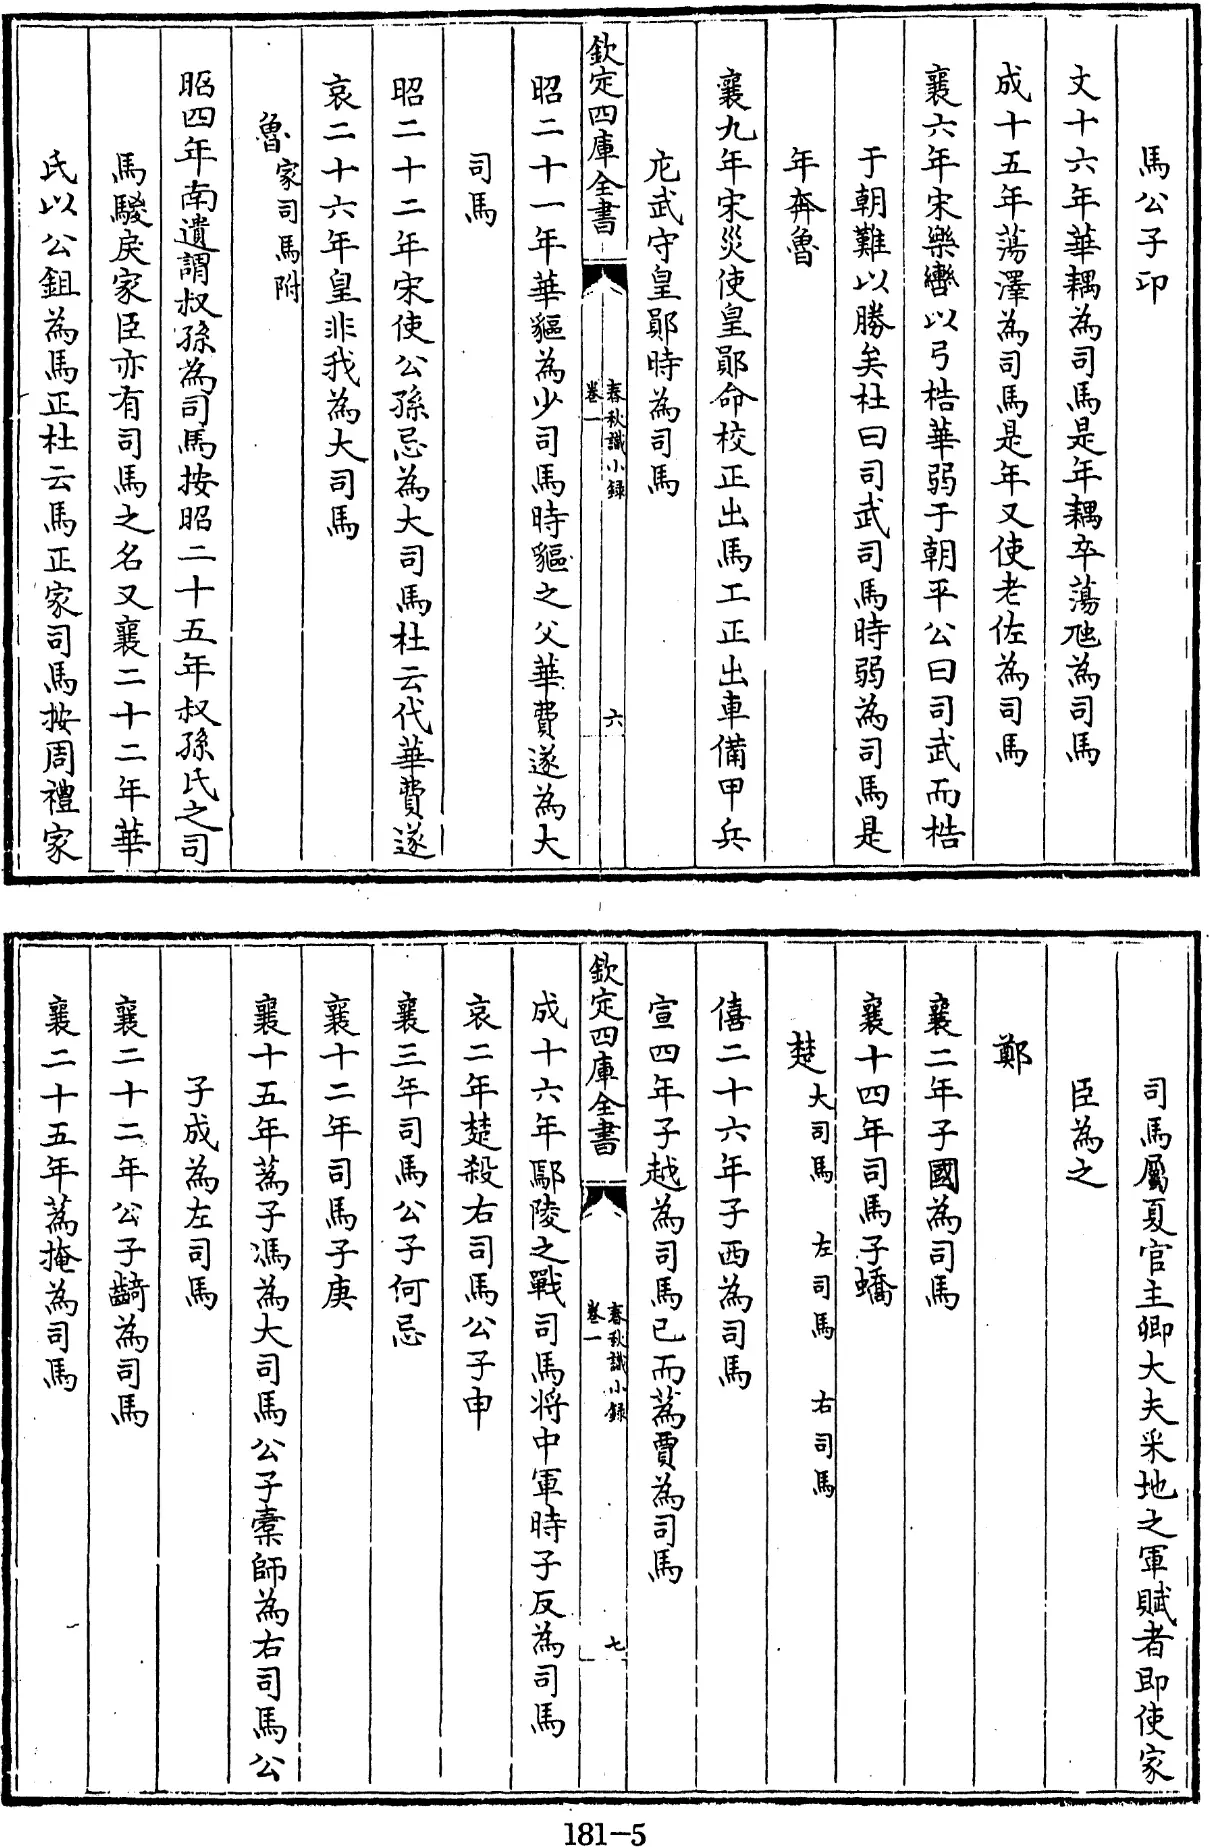 馬公子卬
文十六年華耦為司馬是年耦卒蕩虺為司馬
成十五年蕩澤為司馬是年又使老佐為司馬
襄六年宋樂轡以弓梏華弱于朝平公曰司武而梏
于朝難以勝矣杜曰司武司馬時弱為司馬是
年奔魯
襄九年宋災使皇鄖命校正出馬工正出車備甲兵
庀武守皇鄖時為司馬
欽定四庫全書
春秋識小錄
卷一
六
昭二十一年華貙為少司馬時貙之父華費遂為大
司馬
昭二十二年宋使公孫忌為大司馬杜云代華費遂
哀二十六年皇非我為大司馬
魯家司馬附
昭四年南遺謂叔孫為司馬按昭二十五年叔孫氏之司
馬鬷戾家臣亦有司馬之名又襄二十二年華
氏以公鉏為馬正杜云馬正家司馬按周禮家
司馬屬夏官主卿大夫采地之軍賦者即使家
臣為之
鄭
襄二年子國為司馬
襄十四年司馬子蟜
楚大司馬 左司馬 右司馬
僖二十六年子西為司馬
宣四年子越為司馬已而蒍賈為司馬
欽定四庫全書
春秋識小錄
卷一
七
成十六年鄢陵之戰司馬將中軍時子反為司馬
哀二年楚殺右司馬公子申
襄三年司馬公子何忌
襄十二年司馬子庚
襄十五年蒍子馮為大司馬公子橐師為右司馬公
子成為左司馬
襄二十二年公子齮為司馬
襄二十五年蒍掩為司馬
181-5